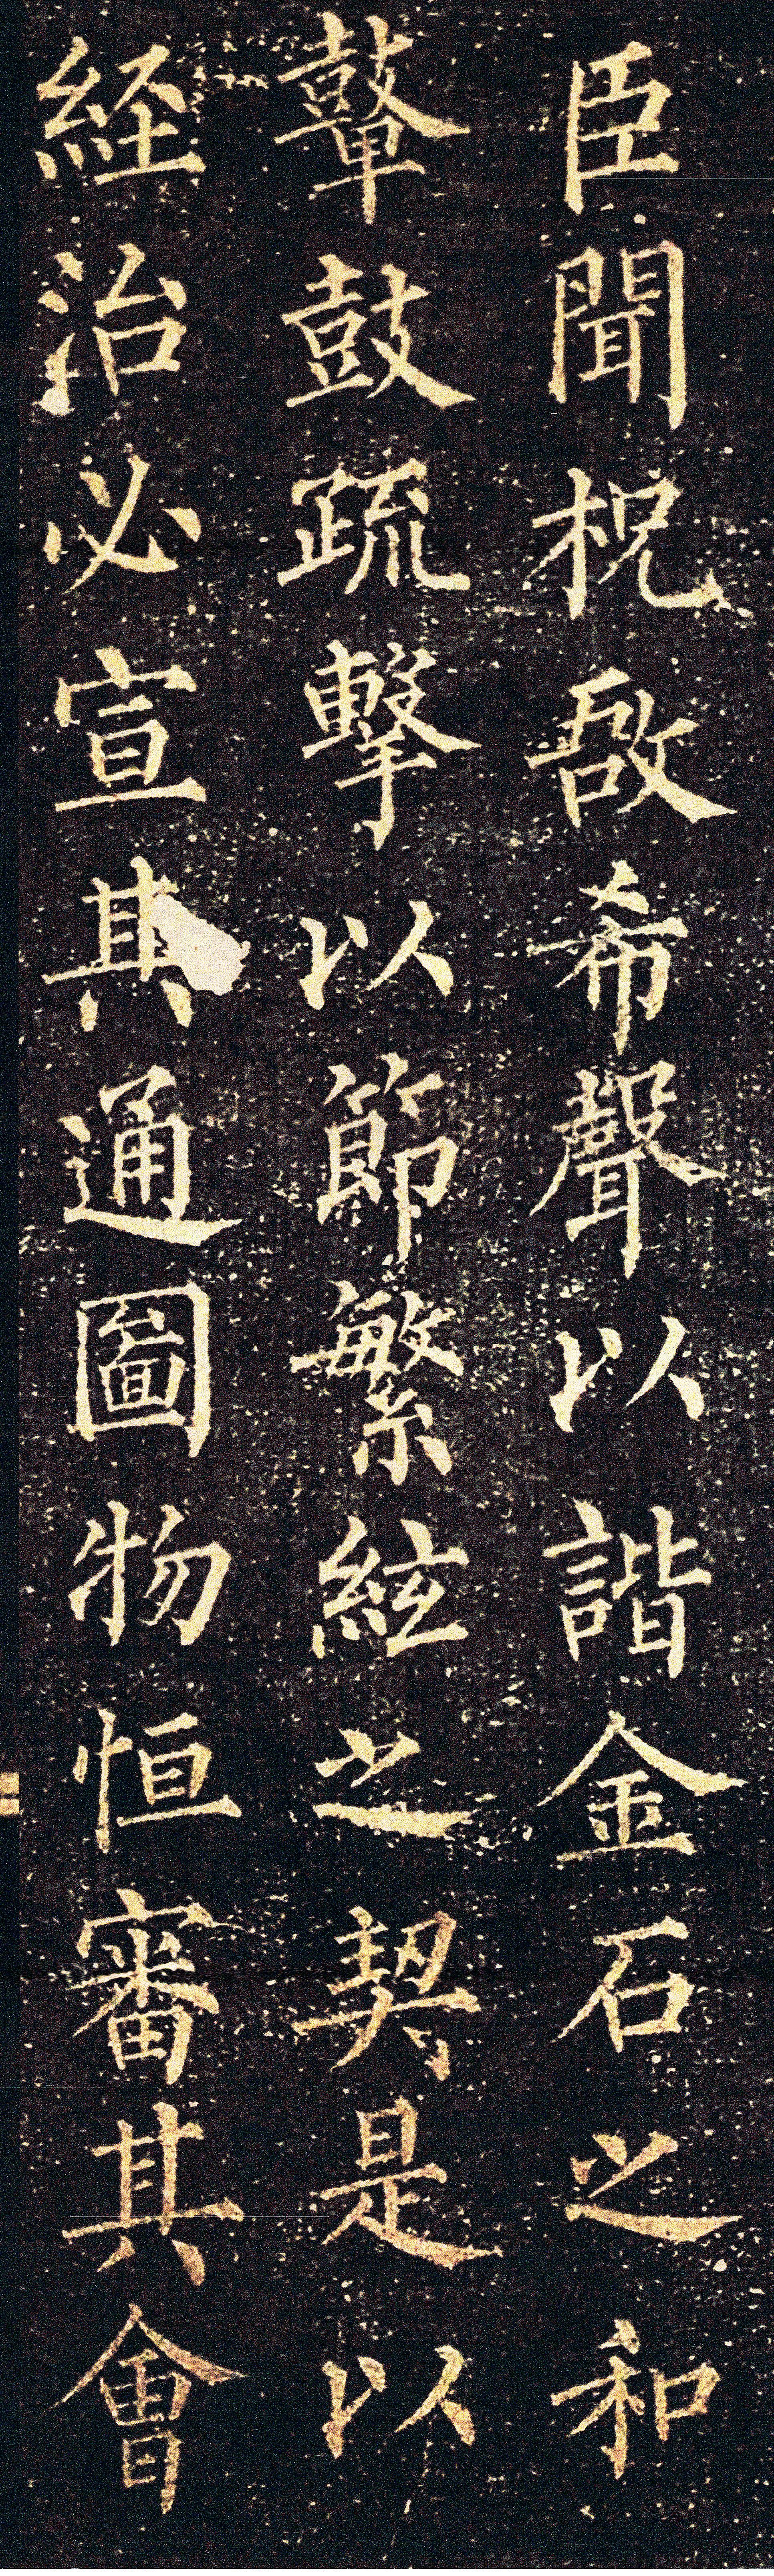 臣聞柷敔希聲以諧金石之和
鼙鼓疏擊以節繁絃之契是以
經治必宣其通圖物恒審其會